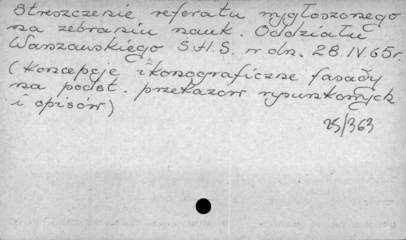 Streszczenie referatu wygłoszonego
na zebraniu nauk. Oddziału
Warszawskiego S.H.S. w dn. 28.IV 65 r.
(Koncepcje ikonograficzne fasady
na podst. przekazów rysunkowych
i opisów)
25/363